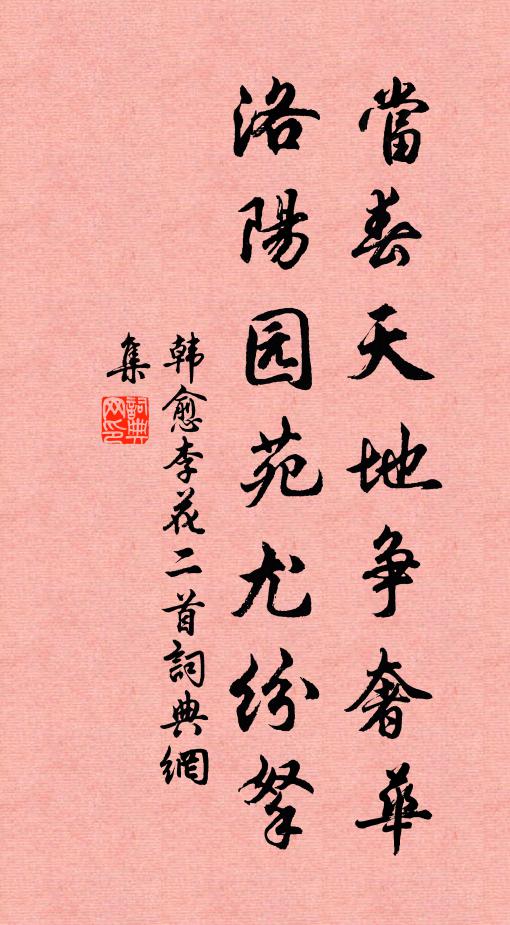 當春天地争奢華
洛陽园苑尤纷拏
韩愈李花二首詞典網
集
詞典网印